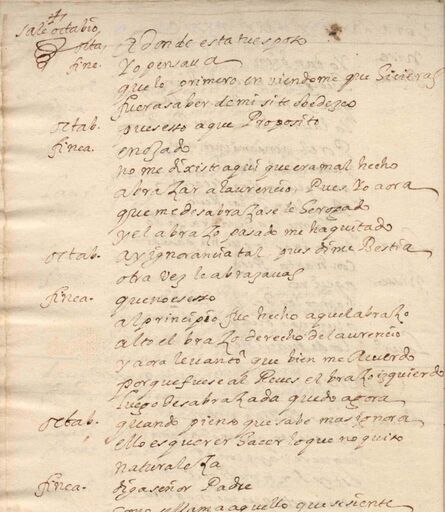 sale octabio
octa. A donde esta tu esposo
fine. Yo pensaua
que lo primero en viendome que hicieras
fuera saber de mi si te obedezco
octab. pues esso a que Proposito
finea. enojado
no me dixiste aqui que era mal hecho
abraҫar a laurencio Pues Yo aora
que me desabraҫase le he rogado
y el abraҫo pasado me ha quitado
octab. ay ignorancia tal pues dime Bestia
otra vez le abraҫauas
finea. que no es esso
al principio fue hecho aquel abraҫo
alto el braҫo derecho de laurencio
y aora leuanto que bien me Acuerdo
porque fuese al Reues el braҫo izquierdo
luego desabraҫada quedo agora
octab. quando pienso que sabe mas ignora
ello es querer hacer lo que no quiso
naturaleҫa
finea. diga señor Padre
como se llama aquello que se siente